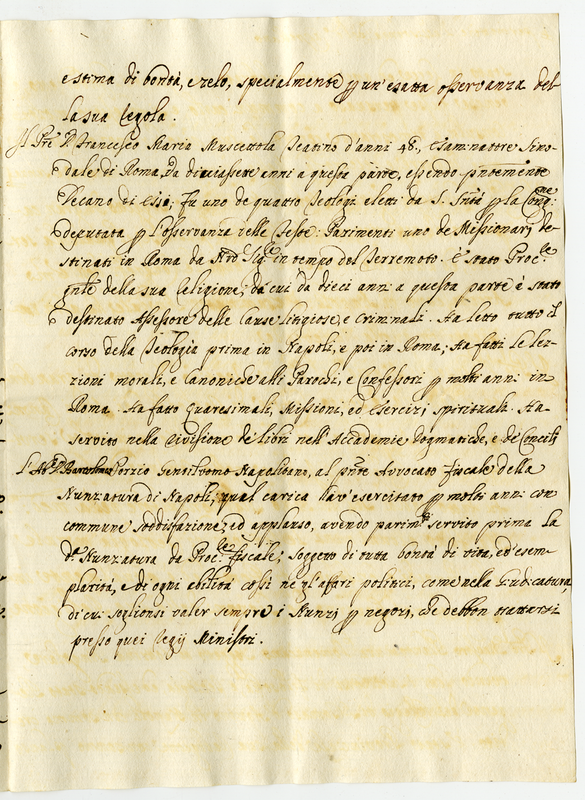 e stima di bontà, e zelo, specialmente p un'esatta osservanza del
la sua Regola.
Il Pre D. Francesco Maria Muscettola Teatino d'anni 48., esaminatore Sino-
dale di Roma, Da diciassette anni a questa parte, essendo pntemente
Decano di essi; Fu uno de quattro Teologi eletti da S. Stà p la Congne:
deputata p l'osservanza delle Feste: Parimenti uno de Missionarj de-
stinati in Roma da Nro Sigre in tempo del Terremoto. È stato Procle
gnle della sua Religione; da cui da dieci anni a questa parte è stato
destinato Assessore delle Cause litigiose, e criminali. Ha letto tutto il
corso della Teologia prima in Napoli, e poi in Roma; Ha fatti le lez-
zioni morali, e Canoniche alli Parochi, e Confessori p molti anni in
Roma. Ha fatto Quaresimali, Missioni, ed esercizj spirituali. Ha
servito nella revisione de libri nell'Accademie Dogmatiche, e de Concilj
L'Abe D. Bartolomeo Porzio Gentiluomo Napolitano, al pnte Avvocato fiscale della
Nunziatura di Napoli, qual carica hav'esercitato p molti anni con
commune soddisfazione, ed applauso, avendo parimte servito prima la
da Nunziatura da Procle fiscale; soggetto di tutta bontà di vita, ed esem-
plarità, e di ogni abilità così ne gl'affari politici, come nella Giudicatura,
di cui soglionsi valer sempre i Nunzj p negozj, che debbon trattarsi
presso quei Regij Ministri.